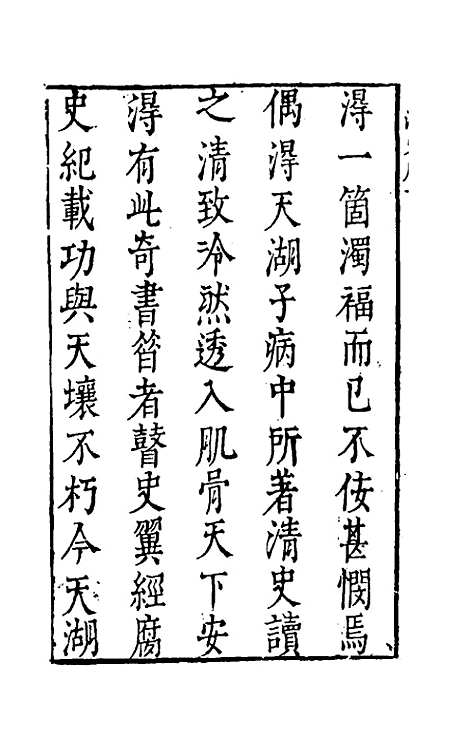 淂一箇濁福而已不佞甚憫焉
偶淂天湖子病中所著清史讀
之清致泠然透入肌骨天下安
淂有此奇書昝者瞽史翼經腐
史紀載功與天壤不朽今天湖